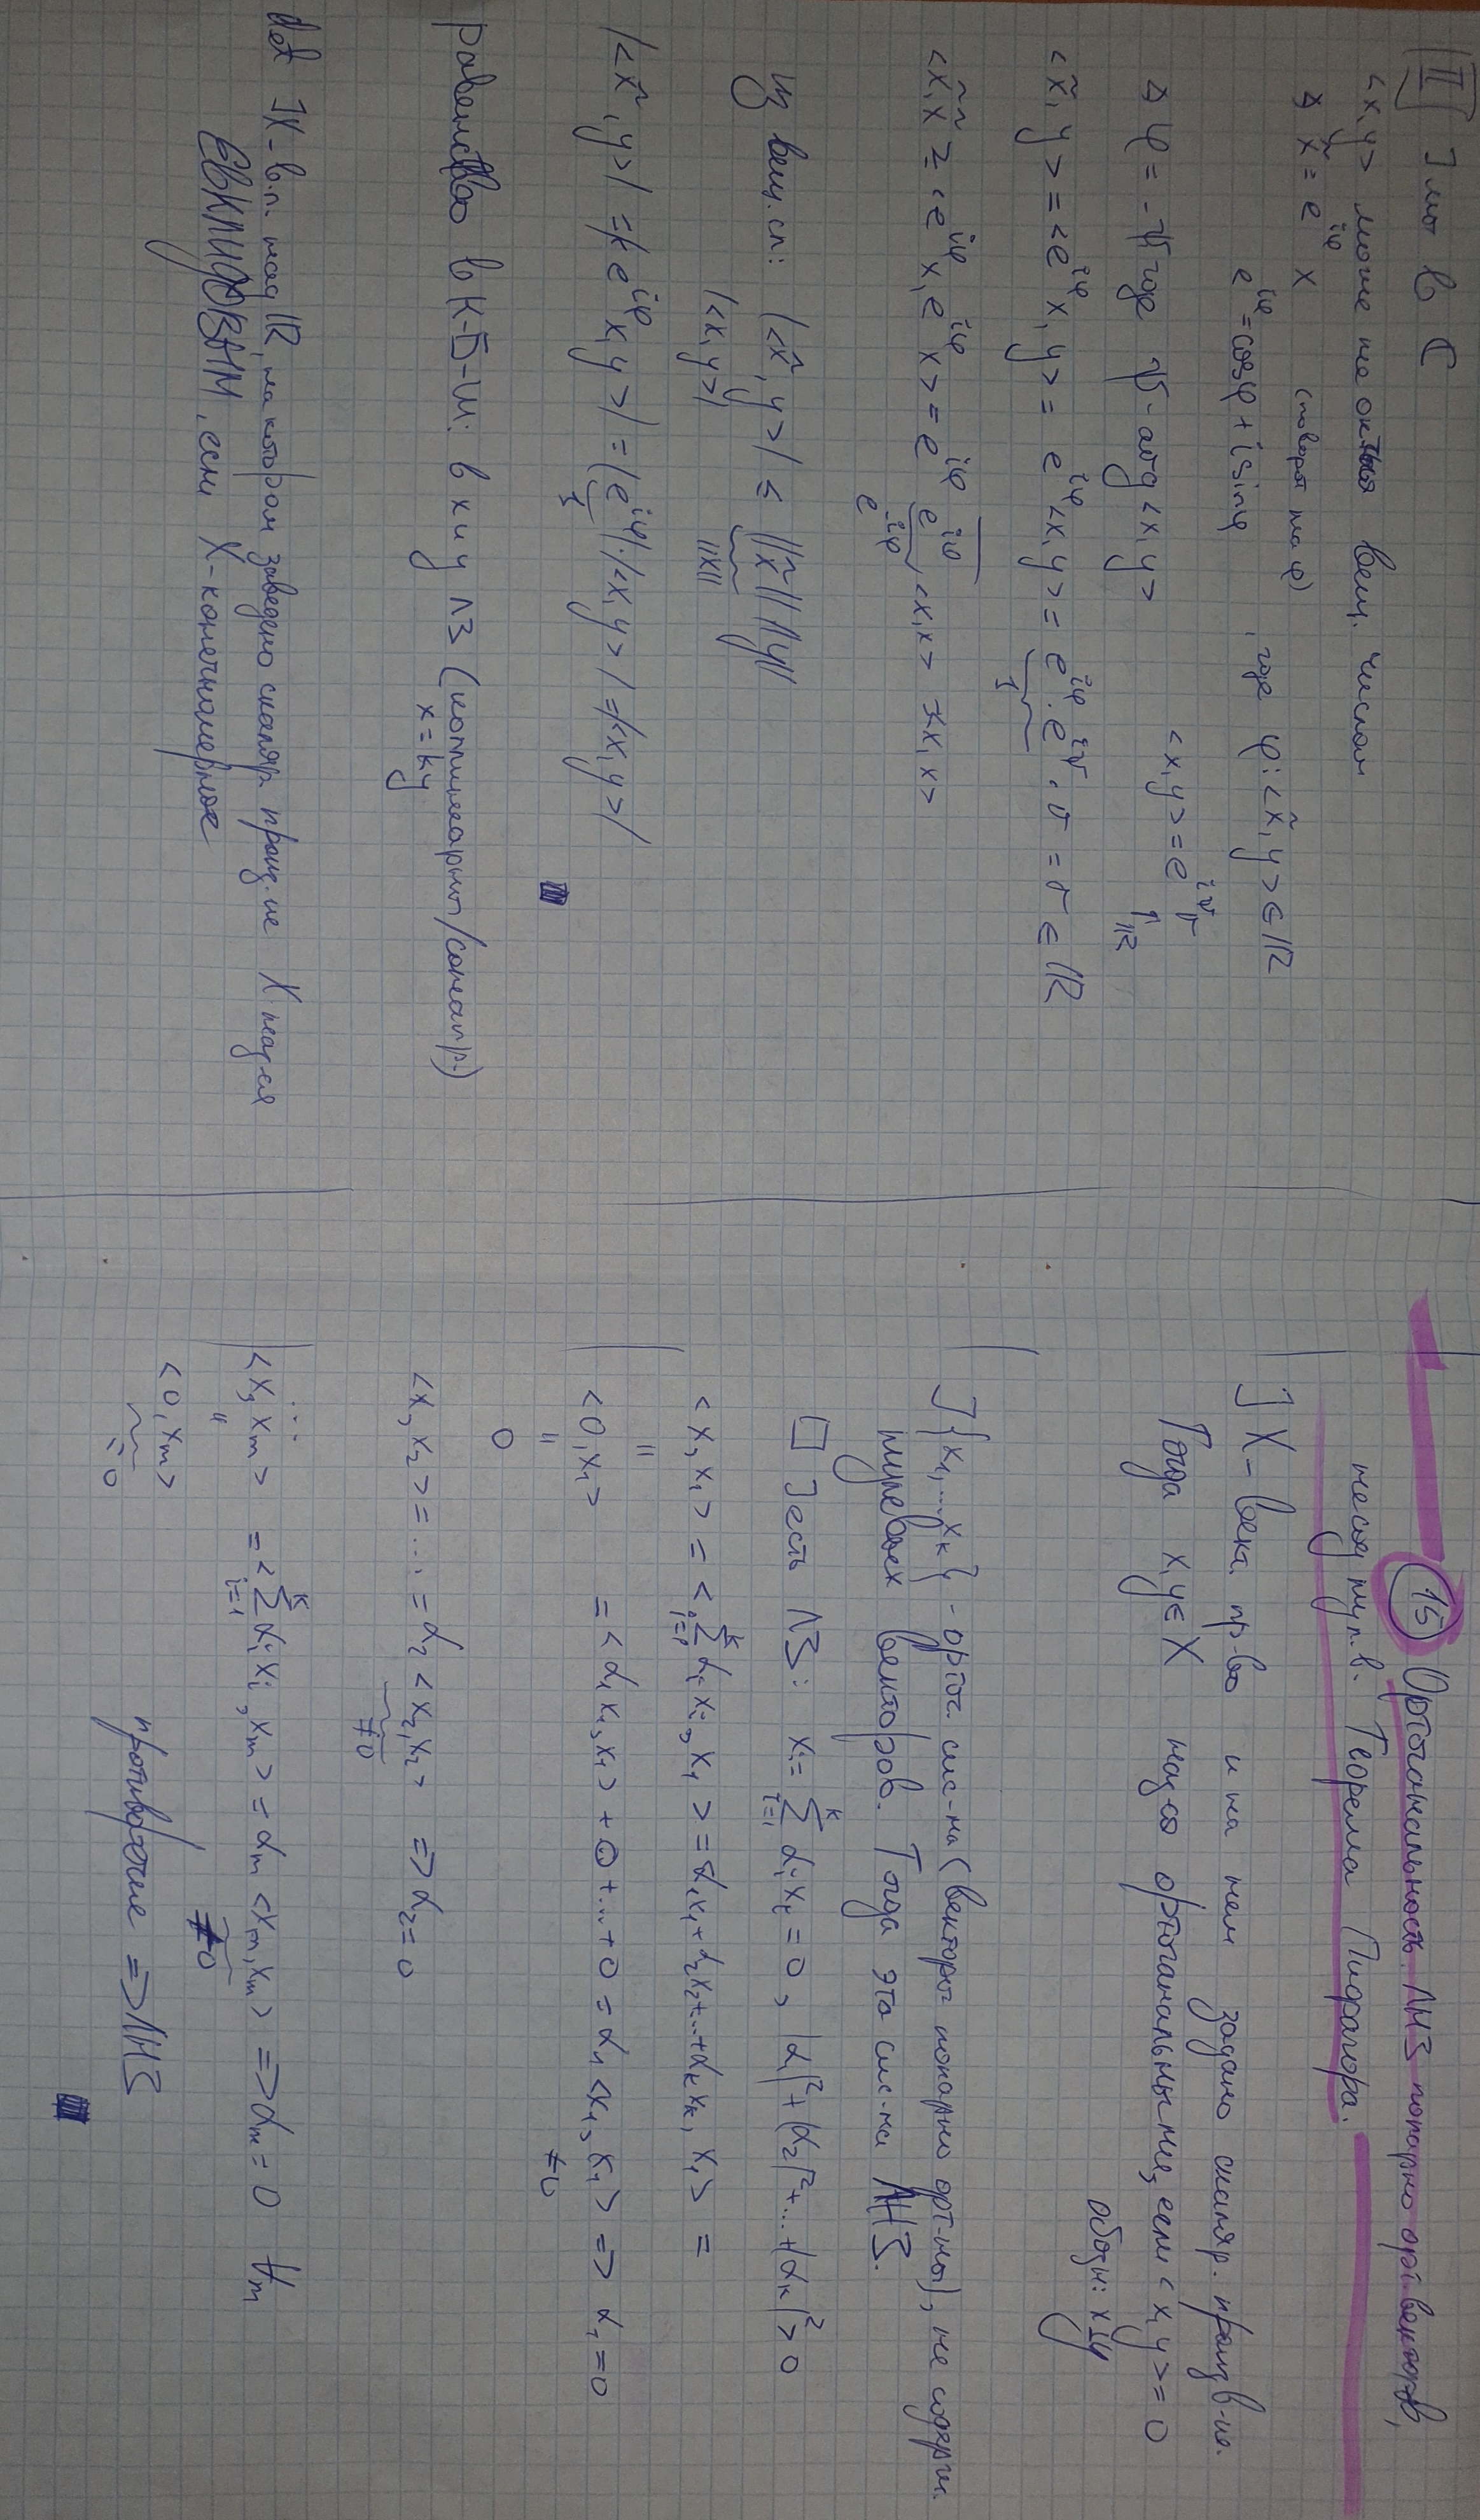 II ] мы в ℂ
<x,y> может не оказаться вещ. числом
⊲ x̃ = e^{iφ} x (поворот на φ), где φ: <x̃,y> ∈ ℝ
e^{iφ} = cosφ + i sinφ
⊲ φ = -ψ где ψ - arg<x,y> <x,y> = e^{iψ} r
↑ ℝ
<x̃,y> = <e^{iφ} x, y> = e^{iφ} <x,y> = e^{iφ} · e^{iψ} · r = r ∈ ℝ
1
<x̃,x̃> = <e^{iφ} x, e^{iφ} x> = e^{iφ} \overline{e^{iφ}} <x,x> = <x,x>
e^{-iφ}
Из вещ. сл.: |<x̃,y>| ≤ ||x̃|| ||y||
|<x,y>| ||x||
|<x̃,y>| = |<e^{iφ} x,y>| = |e^{iφ}|·|<x,y>| = |<x,y>|
1
Равенство в К-Б-Ш: в x и y ЛЗ (коллинеарны/сонапр.)
x = ky
def ] X - в.п. над ℝ, на котором заведено скаляр. произ-ие X наз-ся
ЕВКЛИДОВЫМ, если X - конечномерное
15 Ортогональность. ЛНЗ попарно орт. векторов,
не сод. нул. в. Теорема Пифагора.
] X - вект. пр-во и на нем задано скаляр. произв-ие.
Тогда x,y ∈ X наз-ся ортогональными, если <x,y> = 0
обозн: x⊥y
] {x₁,...,x_k} - ортог. сис-ма (векторы попарно орт-ны), не содерж.
нулевых векторов. Тогда эта сис-ма ЛНЗ.
□ ] есть ЛЗ: x = \sum_{i=1}^{k} α_i x_i = 0, |α₁|² + |α₂|² + ... + |α_k|² > 0
<x, x₁> = <\sum_{i=1}^{k} α_i x_i, x₁> = <α₁x₁ + α₂x₂ + ... + α_k x_k, x₁> =
"
<0, x₁> = <α₁x₁, x₁> + 0 + ... + 0 = α₁<x₁, x₁> ⇒ α₁ = 0
" ≠0
0
<x, x₂> = ... = α₂<x₂, x₂> ⇒ α₂ = 0
≠0
...
<x, x_m> = <\sum_{i=1}^{k} α_i x_i, x_m> = α_m <x_m, x_m> ⇒ α_m = 0 ∀m
" ≠0
<0, x_m> противоречие ⇒ ЛНЗ
=0